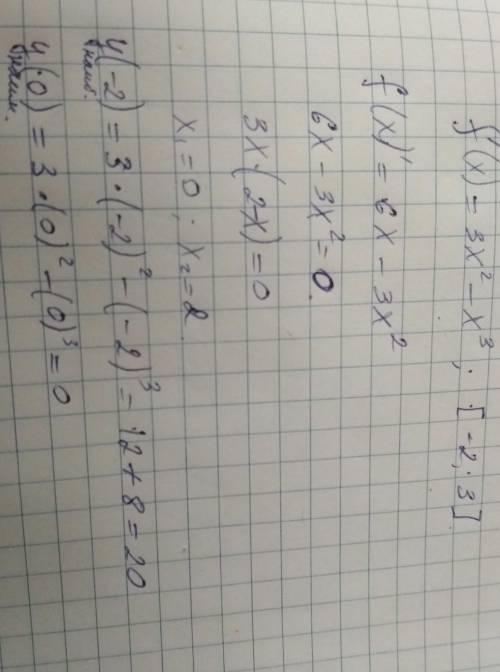 f(x) = 3x² - x³; [-2; 3]
f(x)' = 6x - 3x²
6x - 3x² = 0.
3x·(2-x) = 0
x₁ = 0; x₂ = 2.
y(-2) = 3·(-2)² - (-2)³ = 12 + 8 = 20
наиб.
y(0) = 3·(0)² - (0)³ = 0
наим.